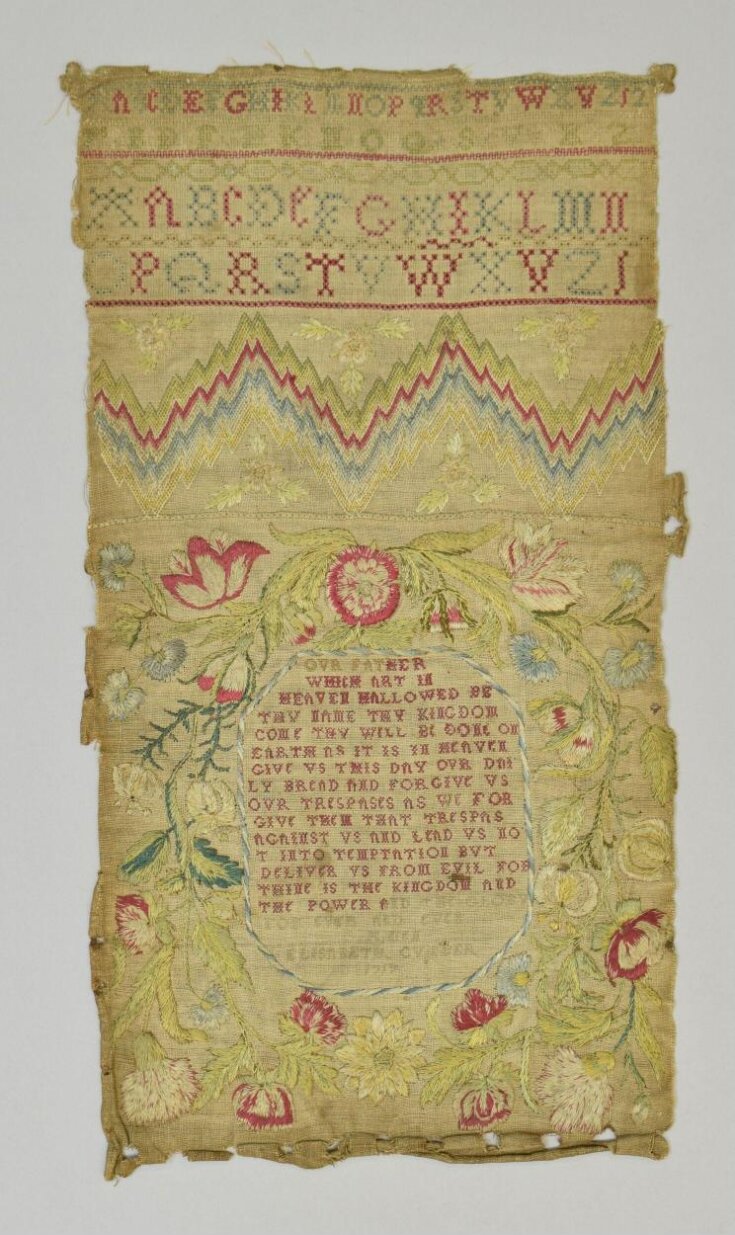 A C D E F G H I K L M N O P Q R S T V W X V Z S 2
A B C D E F G H I K L M N
O P Q R S T V W X V Z S
OVR FATHER
WHICH ART IN
HEAVEN HALLOWED BE
THY NAME THY KINGDOM
COME THY WILL BE DONE ON
EARTH AS IT IS IN HEAVEN
GIVE VS THIS DAY OVR DAI
LY BREAD AND FORGIVE VS
OVR TRESPASES AS WE FOR
GIVE THEM THAT TRESPAS
AGAINST VS AND LEAD VS NO
T INTO TEMPTATION BVT
DELIVER VS FROM EVIL FOR
THINE IS THE KINGDOM AND
THE POWER AND
FOR EVER AND EVER
AMEN
ELISABETH